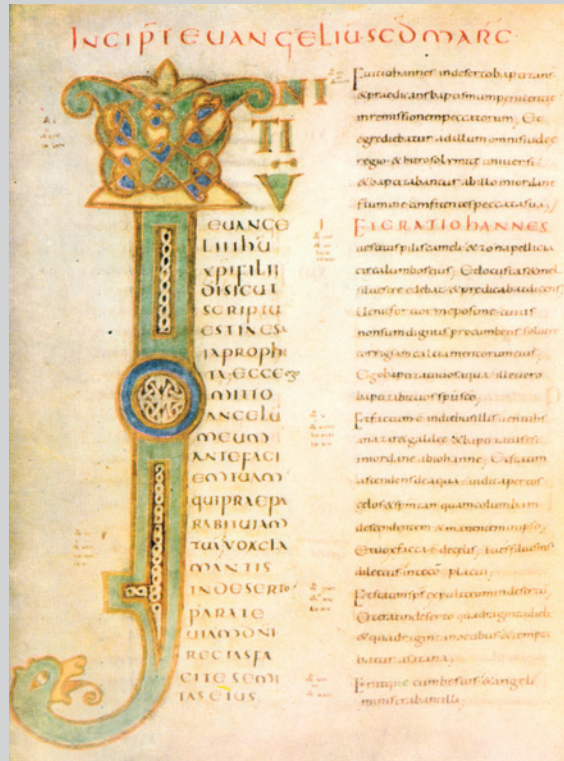 INCIPIT EVANGELIU·SCDM MARC·
INI
TI
V
EVANGE
LII IHU
XPI FILII
DI SICUT
SCRIPTU
EST IN ESA
IA PROPHE
TA, ECCE EGO
MITTO
ANGELU
MEUM
ANTE FACI
EM TUAM
QUI PRAEPA
RABIT UIAM
TUA, VOX CLA
MANTIS
IN DESERTO
PARATE
UIAM DNI
RECTAS FA
CITE SEMI
TAS EIUS
Fuit iohannes in deserto baptizans
& praedicans baptismum penitentiae
in remissionem peccatorum, Et
egrediebatur ad illum omnis iudeae
regio & hierosolymitae universi
& baptizabantur ab illo in iordane
flumine confitentes peccata sua,
ET ERAT IOHANNES
uestitus pilis cameli & zona pellicia
circa lumbos eius, Et locustas & mel
siluestre edebat & praedicabat dicens
Uenit fortior me post me cuius
non sum dignus procumbens soluere
corrigiam calciamentorum eius,
Ego baptizaui uos aqua, ille uero
baptizabit uos spu sco,
Et factum e in diebus illis uenit ihs
a nazareth galileae & baptizatus est
in iordane ab iohanne, Et statim
ascendens de aqua uidit apertos
caelos & spm tamquam columbam
descendentem & manentem in ipso,
Et uox facta e de caelis, tu es filius meus
dilectus in te con placui,
Et statim sps expulit eum in desertum,
Et erat in deserto quadraginta diebus
& quadraginta noctibus & tempta
batur a satana,
Eratque cum bestiis & angeli
ministrabant illi,